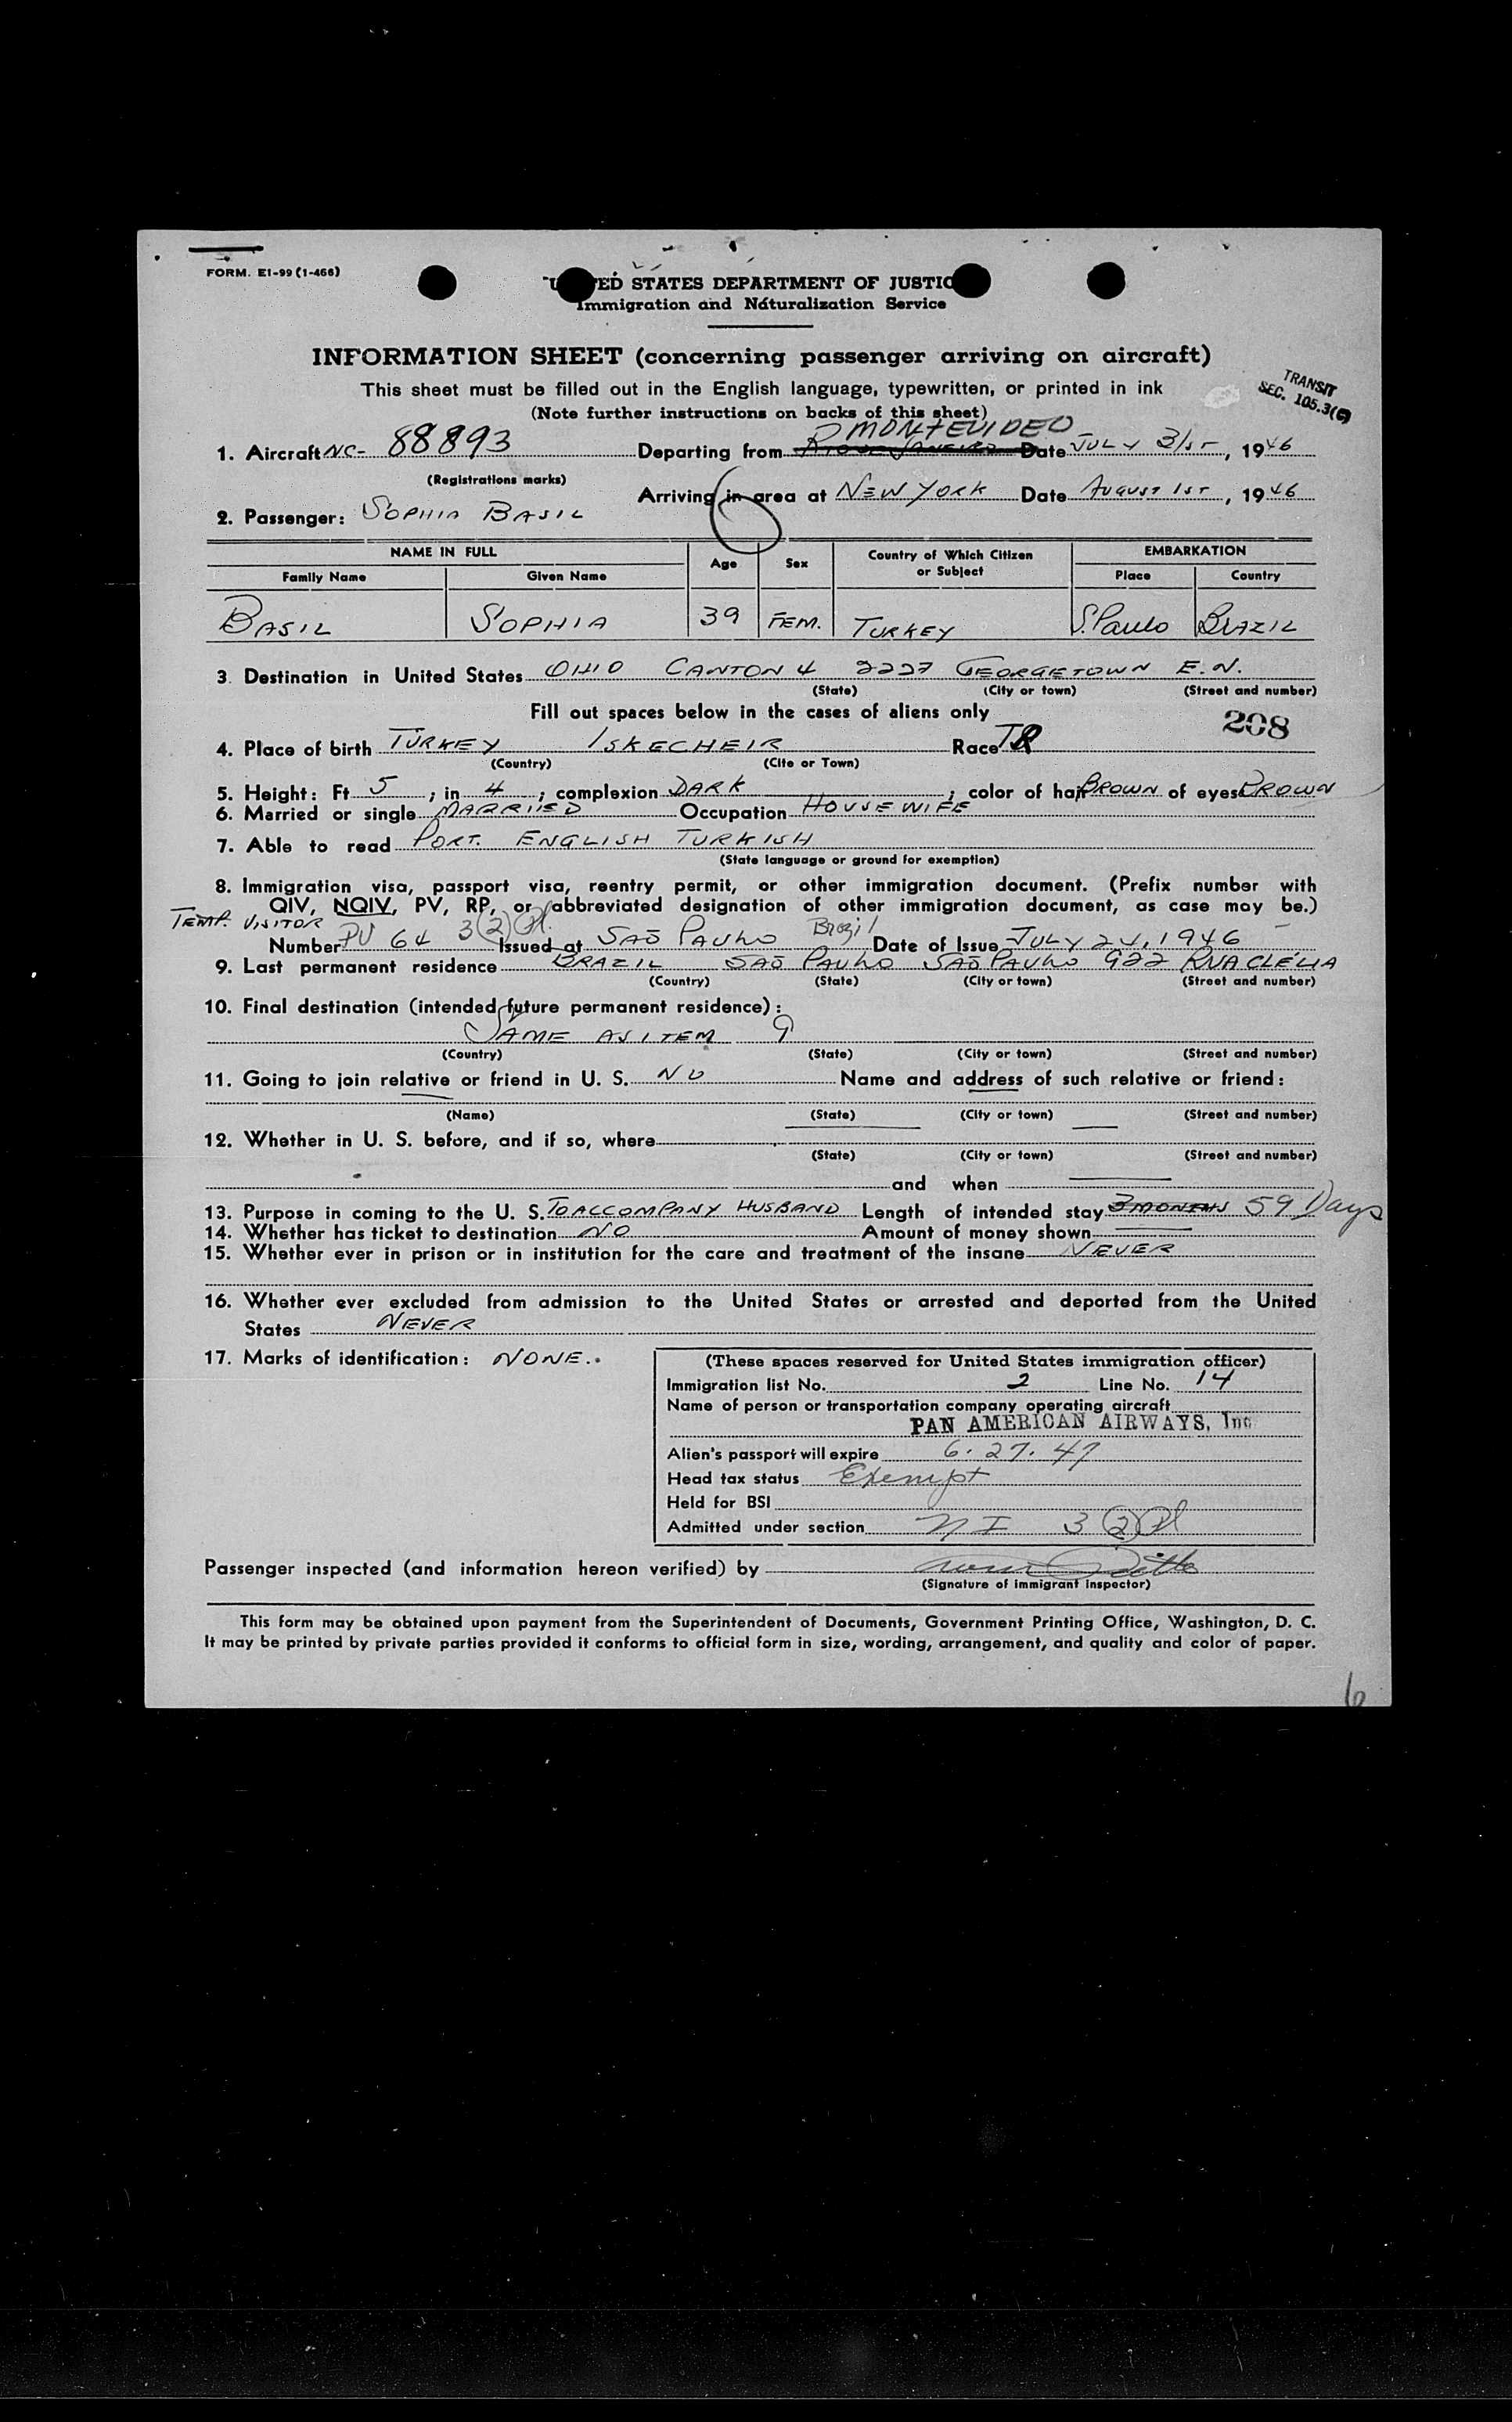 FORM. EI-99 (1-466)
UNITED STATES DEPARTMENT OF JUSTICE
Immigration and Naturalization Service
INFORMATION SHEET (concerning passenger arriving on aircraft)
This sheet must be filled out in the English language, typewritten, or printed in ink
(Note further instructions on backs of this sheet)
TRANSIT
SEC. 105.3(C)
MONTEVIDEO
1. Aircraft NC- 88893 Departing from RIO DE JANEIRO Date JULY 31ST, 1946
(Registrations marks)
Arriving in area at NEW YORK Date AUGUST 1ST, 1946
2. Passenger: SOPHIA BASIL
NAME IN FULL Age Sex Country of Which Citizen or Subject EMBARKATION
Family Name Given Name Place Country
BASIL SOPHIA 39 FEM. TURKEY S. Paulo BRAZIL
3. Destination in United States OHIO CANTON 4 2227 GEORGETOWN E.N.
(State) (City or town) (Street and number)
Fill out spaces below in the cases of aliens only
208
4. Place of birth TURKEY ISKECHEIR Race TR
(Country) (Cite or Town)
5. Height: Ft 5 ; in 4 ; complexion DARK ; color of hair BROWN of eyes BROWN
6. Married or single MARRIIED Occupation HOUSE WIFE
7. Able to read PORT. ENGLISH TURKISH
(State language or ground for exemption)
8. Immigration visa, passport visa, reentry permit, or other immigration document. (Prefix number with
QIV, NQIV, PV, RP, or abbreviated designation of other immigration document, as case may be.)
TEMP. VISITOR
Number PV 64 3(2) Issued at SAÕ PAULO Brazil Date of Issue JULY 24, 1946
9. Last permanent residence BRAZIL SAÕ PAULO SAÕ PAULO 922 RUA CLÉLIA
(Country) (State) (City or town) (Street and number)
10. Final destination (intended future permanent residence):
SAME AS ITEM 9
(Country) (State) (City or town) (Street and number)
11. Going to join relative or friend in U. S. NO Name and address of such relative or friend:
(Name) (State) (City or town) (Street and number)
12. Whether in U. S. before, and if so, where
(State) (City or town) (Street and number)
and when
13. Purpose in coming to the U. S. TO ACCOMPANY HUSBAND Length of intended stay 3 MONTHS 59 Days
14. Whether has ticket to destination NO Amount of money shown
15. Whether ever in prison or in institution for the care and treatment of the insane NEVER
16. Whether ever excluded from admission to the United States or arrested and deported from the United
States NEVER
17. Marks of identification: NONE.
(These spaces reserved for United States immigration officer)
Immigration list No. 2 Line No. 14
Name of person or transportation company operating aircraft
PAN AMERICAN AIRWAYS, Inc
Alien's passport will expire 6. 27. 47
Head tax status Exempt
Held for BSI
Admitted under section NI 3 (2)
Passenger inspected (and information hereon verified) by
(Signature of immigrant inspector)
This form may be obtained upon payment from the Superintendent of Documents, Government Printing Office, Washington, D. C.
It may be printed by private parties provided it conforms to official form in size, wording, arrangement, and quality and color of paper.
6